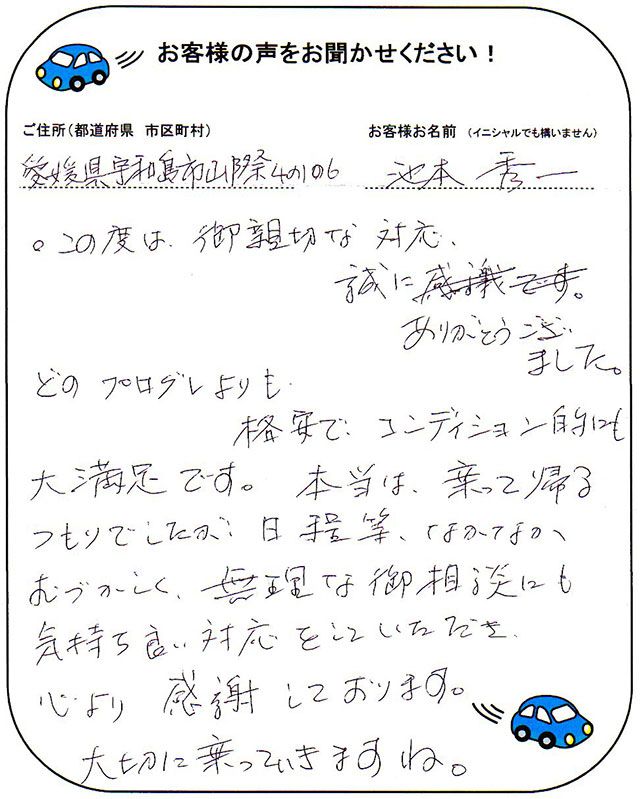 お客様の声をお聞かせください！
ご住所（都道府県　市区町村）　お客様お名前　（イニシャルでも構いません）
愛媛県宇和島市山際4の1の6　池本 秀一
。この度は、御親切な 対応、
誠に感謝です。
ありがとうござい
ました。
どの プログレよりも、
格安で、コンディション的にも
大満足です。 本当は、乗って帰る
つもりでしたが、日程等、なかなか
むづかしく、無理な御相談にも
気持ち良い対応をしていただき、
心より 感謝しております。
大切に乗っていきますね。